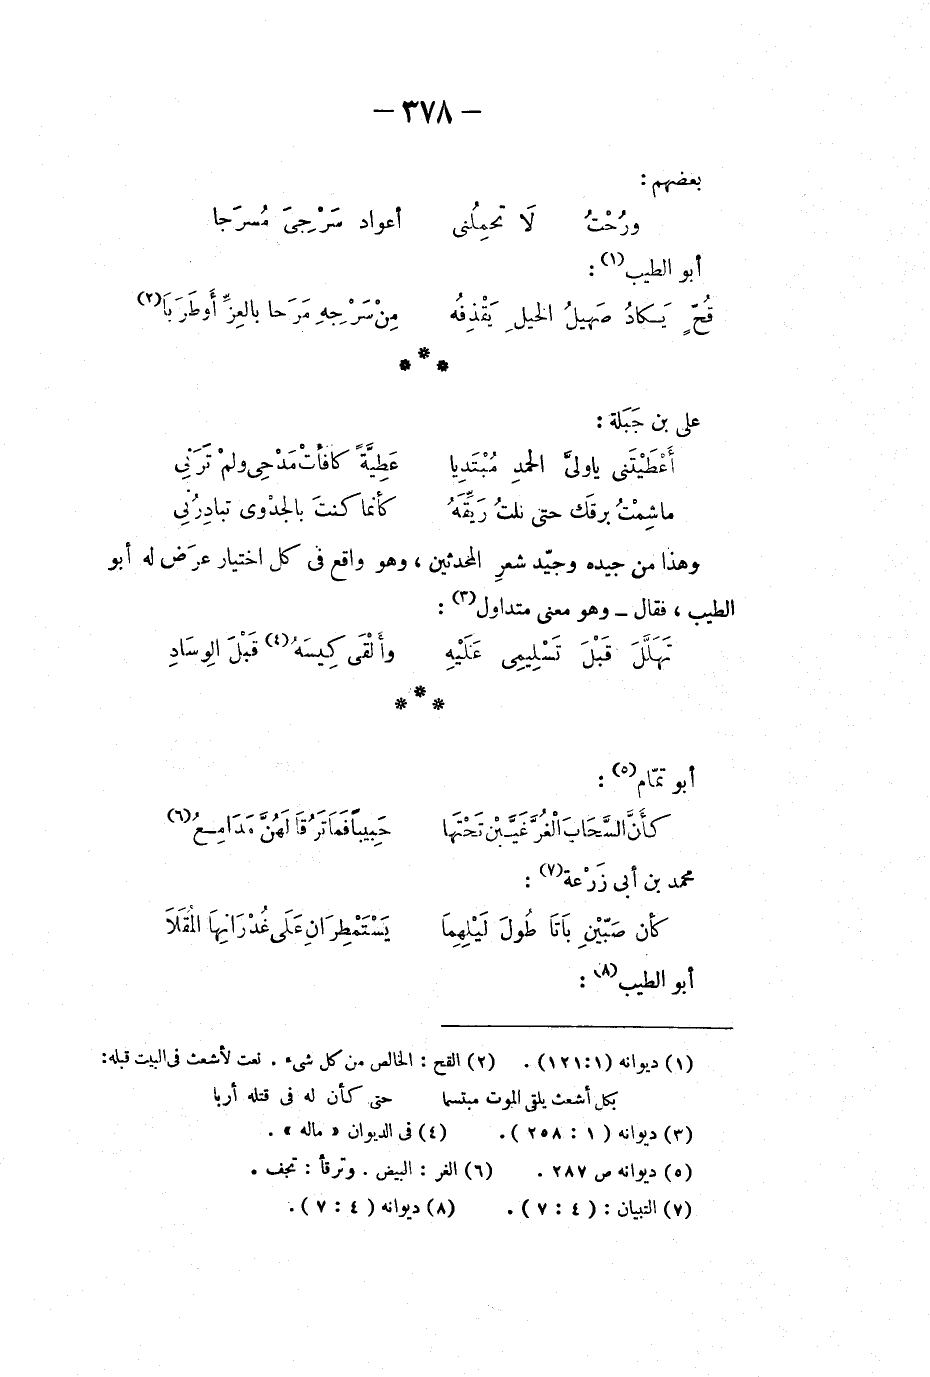 — ٣٧٨ —
بعضهم :
ورُحْتُ لَا تحمِلُنى أعواد سَرْجِىَ مُسرَجا
أبو الطيب(١) :
قُحٍّ يَكادُ صَهيلُ الخيلِ يَقْذفِهُ مِنْ سَرْجِهِ مَرَحا بالعِزِّ أَوطَرَبَا(٢)
* * *
على بن جَبَلة :
أَعْطَيْتَنى ياولىَّ الحمدِ مُبْتَدِيا عَطِيَّةً كافأتْ مَدْحِى ولمْ تَرَنِي
ماشِمْتُ برقَك حتى نلتُ رَيِّقَهُ كأنما كنتَ بالجدْوى تبادِرُنِي
وهذا من جيده وجيّد شعرِ المحدثين ، وهو واقع فى كل اختيار عرَض له أبو
الطيب ، فقال – وهو معنى متداول(٣) :
تَهَلَّلَ قَبْلَ تَسْلِيمِى عَلَيْهِ وأَلْقَى كِيسَهُ(٤) قَبْلَ الوِسَادِ
* * *
أبو تمّام(٥) :
كَأَنَّ السَّحَابَ الْغُرَّ غَيَّبْنَ تَحْتَهَا حَبِيباً فَمَا تَرْقَا لَهُنَّ مَدَامِعُ(٦)
محمد بن أبى زَرْعة(٧) :
كأن صَبّيْنِ بَاتَا طُولَ لَيْلِهِمَا يَسْتَمْطِرَانِ عَلَى غُدْرَانِهَا المُقَلَا
أبو الطيب(٨) :
(١) ديوانه (١٢١:١) . (٢) القح : الخالص من كل شىء . نعت لأشعث فى البيت قبله:
بكل أشعث يلقى الموت مبتسما حتى كأن له فى قتله أربا
(٣) ديوانه ( ١ : ٢٥٨ ). (٤) فى الديوان « ماله » .
(٥) ديوانه ص ٢٨٧ . (٦) الغر : البيض . وترقأ : تجف .
(٧) التبيان : ( ٤ : ٧ ) . (٨) ديوانه ( ٤ : ٧ ) .